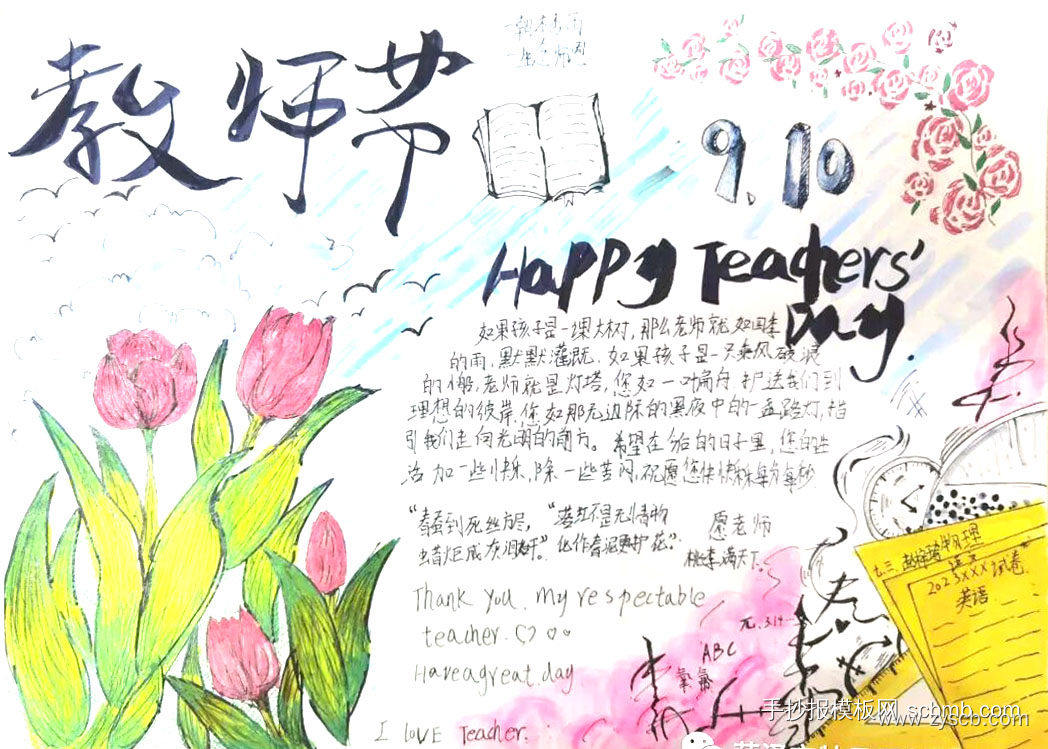 教师节
9.10
Happy Teachers'
Day.
如果孩子是一棵大树,那么老师就如四季
的雨,默默灌既.如果孩子是一只乘风破浪
的小船,老师就是灯塔,您如一叶扁舟,护送我们到
理想的彼岸,您如那无边际的黑夜中的一盏路灯,指
引我们走向光明的前方。希望在今后的日子里,您的生
活加一些快乐,除一些苦闷,祝愿您快快乐乐每分每秒
“春蚕到死丝方尽,
蜡炬成灰泪始干。”
“落红不是无情物
化作春泥更护花”.
愿老师
桃李满天下。
Thank you. my respectable
teacher.
Have a great day
I LOVE Teacher.
π.3.14
ABC
语文
2023XXX试卷
英语
手抄报模板网 scbmb.com
www.zyscb.com